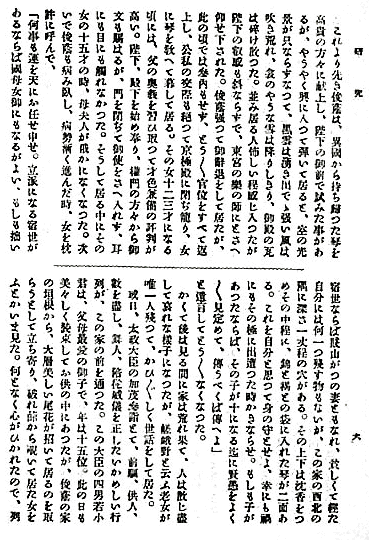 研究
六
これより先き俊蔭は、異國から持ち歸つた琴を
高貴の方々に献上し、陛下の御前で試みた事があ
るが、やうやく興に入つて彈いて居ると、空の光
景が只ならずなつて、黑雲は湧き出で、强い風は
吹き荒れ、衾のやうな雪は降りしきり、御殿の瓦
は碎け散つた。並み居る人怖しい程感に入つたが
陛下の叡感も斜ならずで、東宮の樂の師にとさへ
仰せ下された。俊蔭强つて御辭退をして居たが、
此の頃では參内もせず、とう〳〵官位をすべて返
上し、公私の交際も絶つて京極殿に閉ぢ籠り、女
に琴を敎へて暮して居る。その女十二三才になる
頃には、父の奧義を習ひ取つて才色兼備の評判が
高い。陛下、殿下を始め奉り、權門の方々から御
文も賜はるが、門を閉ぢて御使をさへ入れず、耳
にも目にも觸れなかつた。そうして居る中にその
女の十五才の時、母夫人が俄かになくなつた。次
いで俊蔭も病み臥し、病勢漸く進んだ時、女を枕
許に呼んで、
「何事も運を天にお任せ申せ。立派になる宿世が
あるならば國母女御にもなるがよい、もしも拙い
宿世ならば賤山がつの妻ともなれ、貧しくて經た
自分には何一つ殘す物もないが、この家の西北の
隅に深さ一丈程の穴がある。その上下は沈香をつ
めその中程に、錦と褐との袋に入れた琴が二面あ
る。これを自分と思つて身の守とせよ。幸にも禍
にもその極に出遭つた時かきならせ。もしも子が
あつたならば、その子が十になる迄に賢愚をよく
〳〵見定めて、傳うべくば傳へよ」
と遺言してとう〳〵なくなつた。
かくて後は見る間に家は荒れ果て、人は散じ盡
して哀れな樣子になつたが、嵯峨野と云ふ老女が
唯一人殘つて、かひ〴〵しく世話をして居た。
或日、太政大臣の加茂參詣とて、前驅、供人、
數を盡し、舞人、陪從威儀を正したいかめしい行
列が、この家の前を通つた。この大臣の四男若小
君は、父母最愛の御子で、年は十五位。此の日も
美々しく裝束してお供の中にあつたが、俊蔭の家
の垣根から、大層美しい尾花が招いて居るのを取
らうとして立ち寄り、破れ蔀から覗いて居た女を
ふとかいま見た。何となく心がひかれたので、列